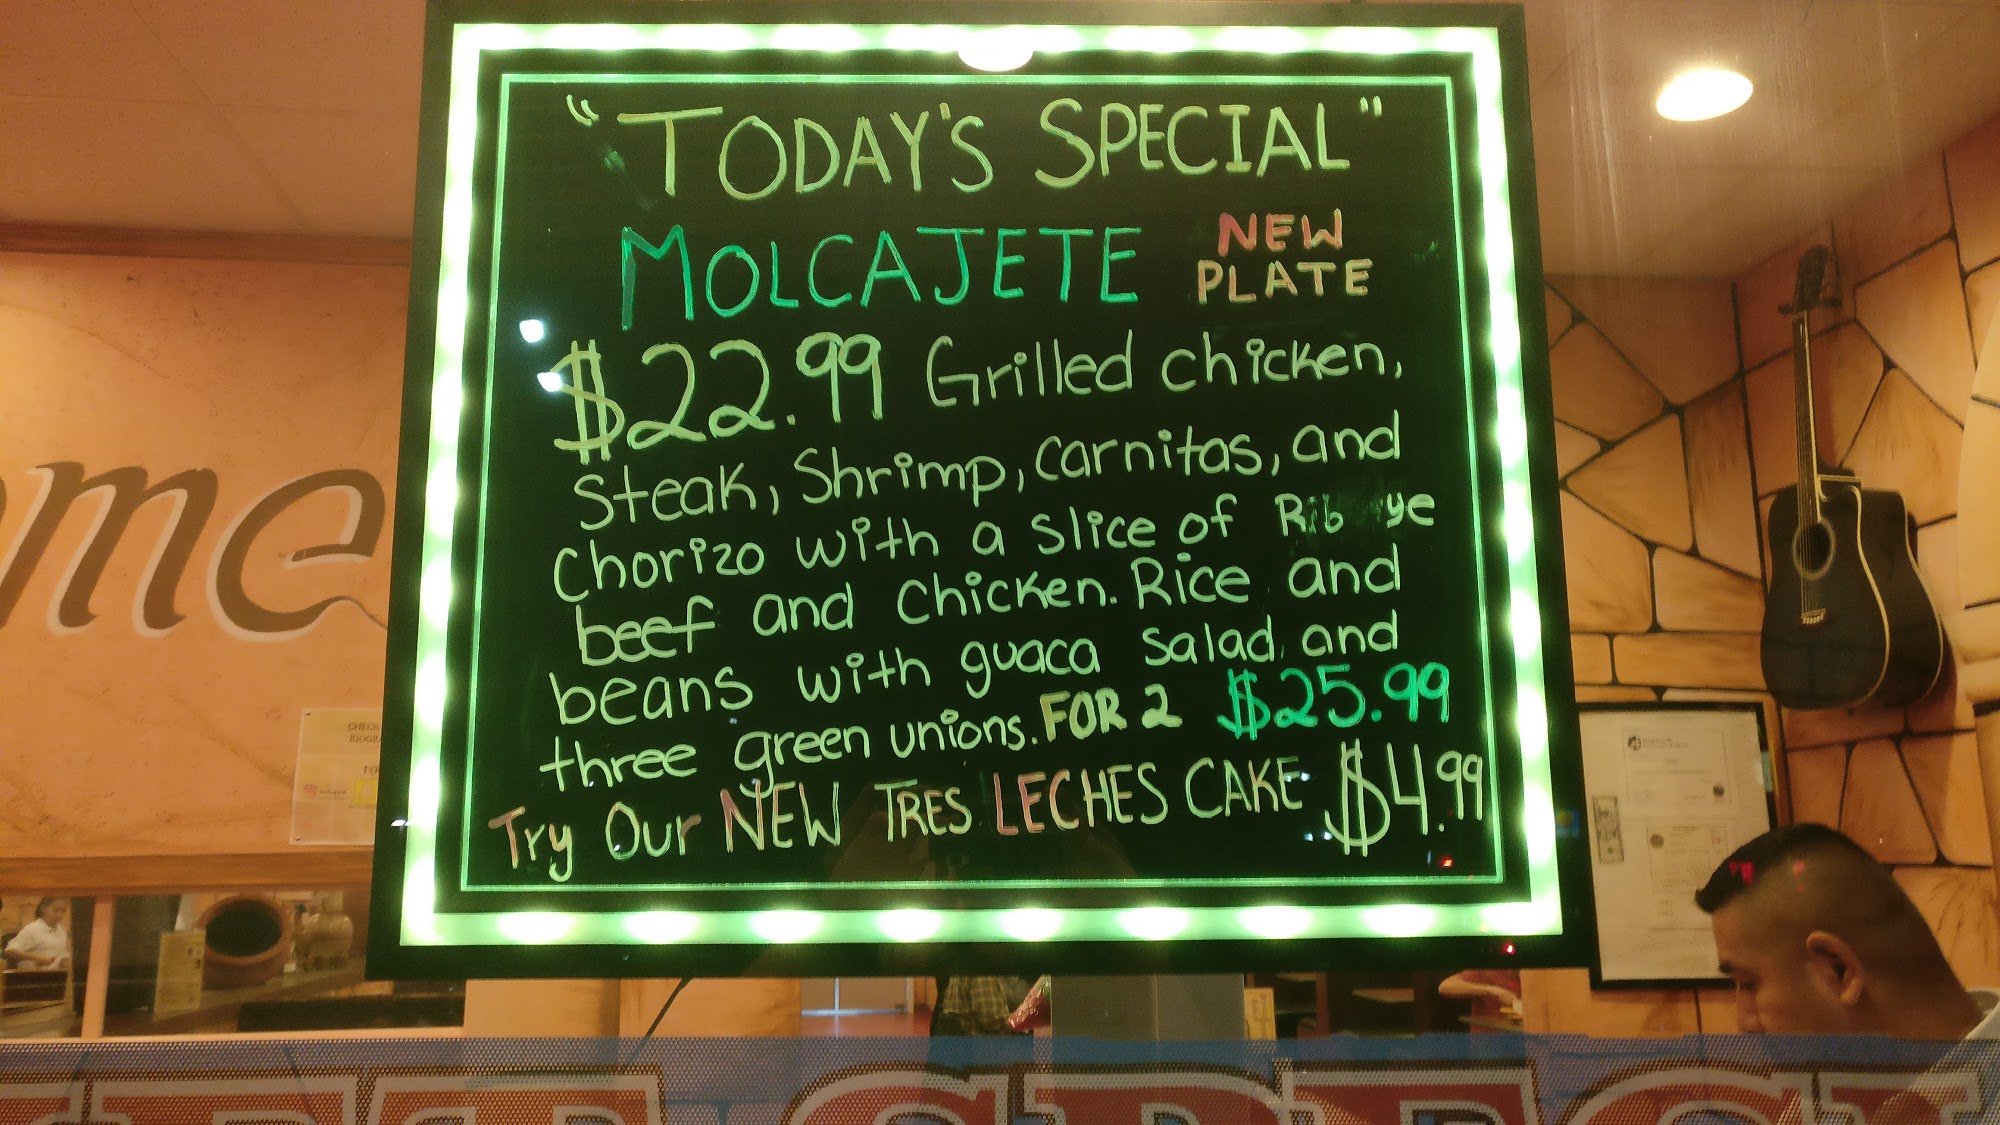 "TODAY'S SPECIAL"
MOLCAJETE NEW PLATE
$22.99 Grilled chicken,
Steak, Shrimp, Carnitas, and
Chorizo with a slice of Rib ye
beef and chicken. Rice and
beans with guaca salad, and
three green unions. FOR 2 $25.99
Try Our NEW TRES LECHES CAKE $4.99
ome